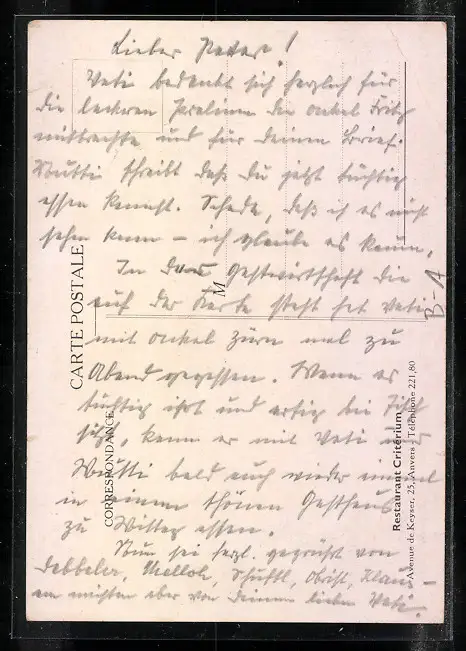 Lieber Peter!
Vati bedankt sich herzlich für
die leckeren Pralinen die onkel Fritz
mitbrachte und für deinen Brief.
Mutti schreibt daß du jetzt tüchtig
essen kannst. Schade, daß ich es nicht
sehen kann – ich glaube es kaum.
In der Gastwirtschaft die
auf der Karte steht hat Vati
mit onkel zu
Abend gegessen. Wenn er
tüchtig ißt und artig bei Tisch
sitzt, kann er mit Vati und
Mutti bald auch wieder einmal
in einem schönen Gasthaus
zu Mittag essen.
Nun sei herzl. gegrüßt von
am meisten aber von deinem lieben Vati.
CARTE POSTALE
CORRESPONDANCE
M
B-A
Restaurant Critérium
Avenue de Keyser, 25, Anvers - Téléphone 221,80